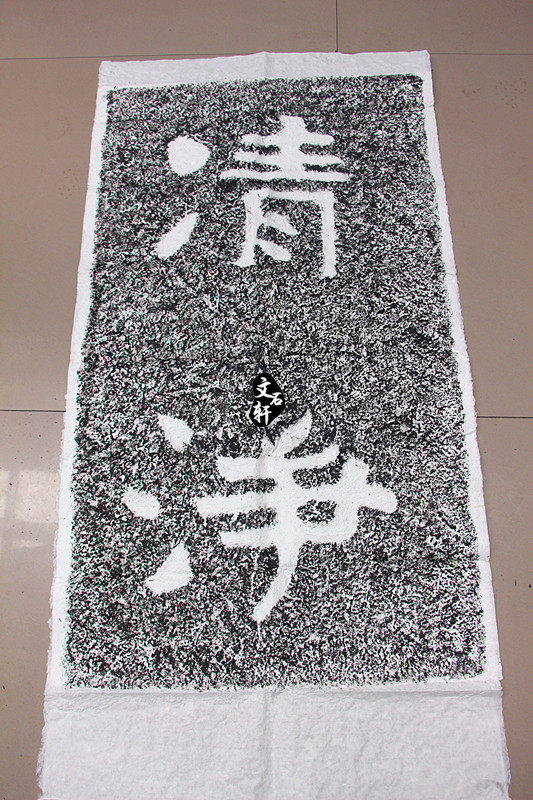 清
浄
文石轩